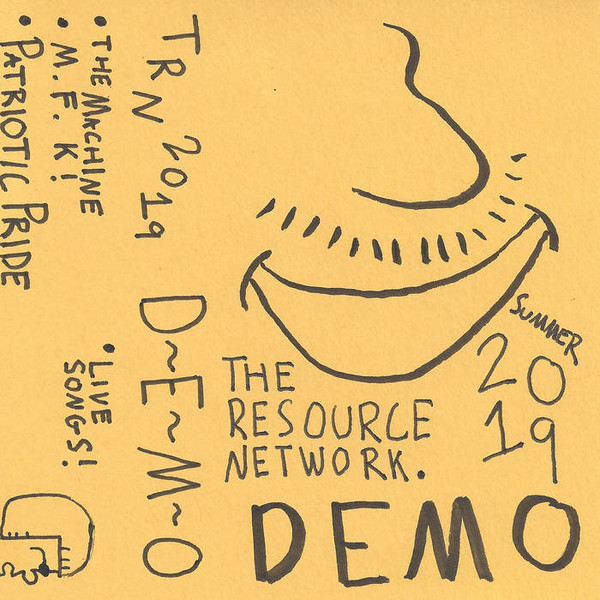 SUMMER
2019
THE
RESOURCE
NETWORK.
DEMO
TRN 2019 D~E~M~O
• THE MACHINE
• M.F.K!
• PATRIOTIC PRIDE
• LIVE
SONGS!